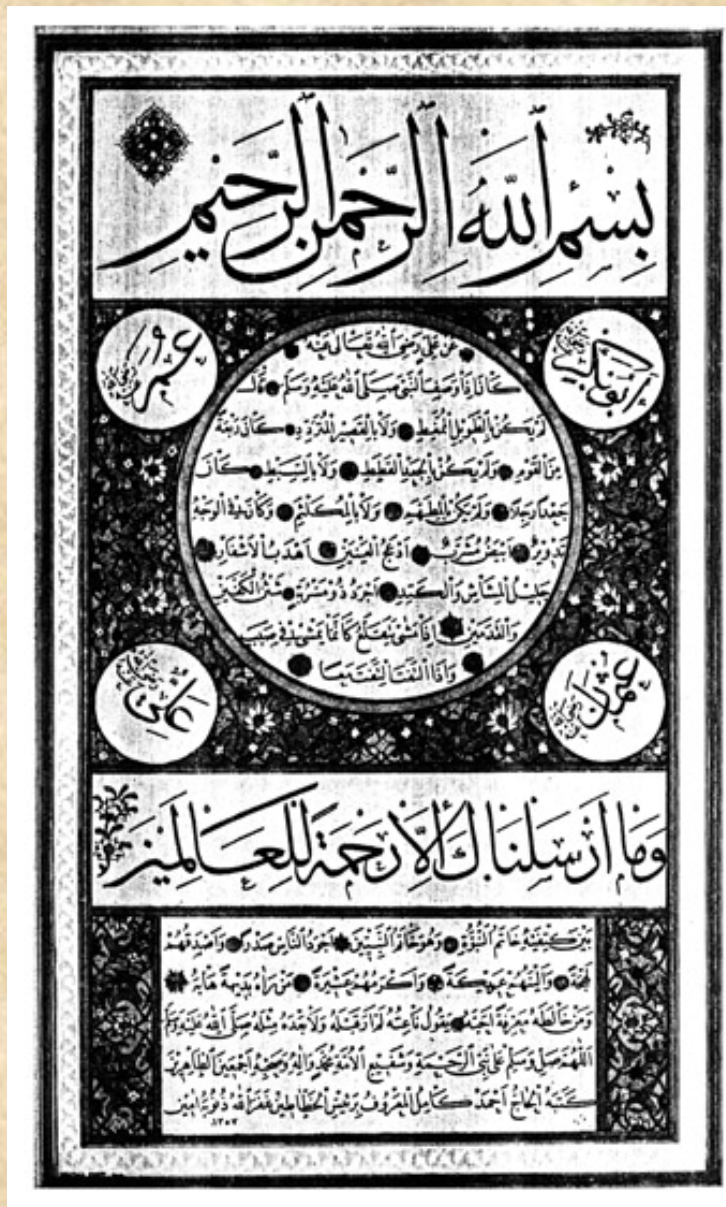 بِسْمِ اللهِ الرَّحْمٰنِ الرَّحِيمِ
ابوبكر
عمر
عن علي رضي الله تعالى عنه
كان اذا وصف النبي صلى الله عليه وسلم قال
لم يكن بالطويل الممغط ولا بالقصير المتردد كان ربعة
من القوم ولم يكن بالجعد القطط ولا بالسبط كان
جعدا رجلا ولم يكن بالمطهم ولا بالمكلثم وكان في الوجه
تدوير ابيض مشرب ادعج العينين اهدب الاشفار
جليل المشاش والكتد اجرد ذو مسربة شثن الكفين
والقدمين اذا مشى يتقلع كانما يمشي في صبب
واذا التفت التفت معا
عثمان
علي
وما ارسلناك الا رحمة للعالمين
بين كتفيه خاتم النبوة وهو خاتم النبيين اجود الناس صدرا واصدقهم
لهجة والينهم عريكة واكرمهم عشيرة من راه بديهة هابه
ومن خالطه معرفة احبه يقول ناعته لم ار قبله ولا بعده مثله صلى الله عليه وسلم
اللهم صل وسلم على نبي الرحمة وشفيع الامة محمد واله وصحبه اجمعين الطاهرين
كتبه الحاج احمد كامل المعروف برئيس الخطاطين غفر الله ذنوبه امين